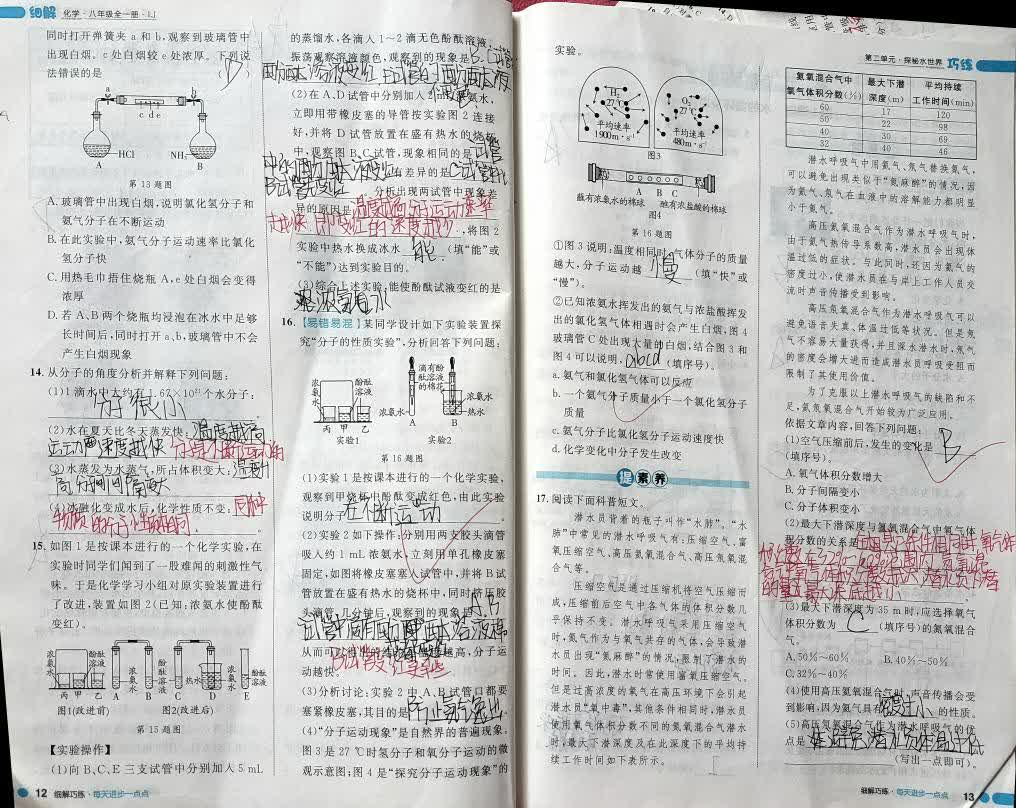 细解 化学·八年级全一册·LJ
同时打开弹簧夹 a 和 b,观察到玻璃管中
出现白烟,c 处白烟较 e 处浓厚。下列说
法错误的是 ( D )
a b
c d e
HCl NH₃
A B
第 13 题图
A. 玻璃管中出现白烟,说明氯化氢分子和
氨气分子在不断运动
B. 在此实验中,氨气分子运动速率比氯化
氢分子快
C. 用热毛巾捂住烧瓶 A,e 处白烟会变得
浓厚
D. 若 A、B 两个烧瓶均浸泡在冰水中足够
长时间后,同时打开 a、b,玻璃管中不会
产生白烟现象
14. 从分子的角度分析并解释下列问题:
(1)1 滴水中大约有 1.67×10²¹ 个水分子:
分子微小
(2)水在夏天比冬天蒸发快:温度越高
运动速度越快 分子是不断运动的
(3)水蒸发为水蒸气,所占体积变大:温度升
高分子间间隔变大
(4)冰融化变成水后,化学性质不变:同种
物质的分子性质相同
15. 如图 1 是按课本进行的一个化学实验,在
实验时同学们闻到了一股难闻的刺激性气
味。于是化学学习小组对原实验装置进行
了改进,装置如图 2(已知:浓氨水使酚酞
变红)。
浓氨水 酚酞溶液 酚酞溶液 浓氨水 热水 酚酞溶液
丙 甲 乙 A B C D E
图1(改进前) 图2(改进后)
第 15 题图
【实验操作】
(1)向 B、C、E 三支试管中分别加入 5 mL
12 细解巧练·每天进步一点点
的蒸馏水,各滴入 1～2 滴无色酚酞溶液,
振荡,观察溶液颜色,观察到的现象是
(2)在 A、D 试管中分别加入 2 mL 浓氨水,
立即用带橡皮塞的导管按实验图 2 连接
好,并将 D 试管放置在盛有热水的烧杯
中,观察图 B、C 试管,现象相同的是
差异的是
分析出现两试管中现象差
异的原因是 温度越高分子运动速率
越快,
,将图 2
实验中热水换成冰水 能 (填“能”或
“不能”)达到实验目的。
(3)综合上述实验,能使酚酞试液变红的是
溶液氨水
16. 【易错易混】某同学设计如下实验装置探
究“分子的性质实验”,分析回答下列问题:
浓氨水 酚酞溶液 滴有酚酞溶液的棉花 浓氨水 浓氨水 热水
丙 甲 乙 A B
实验1 实验2
第 16 题图
(1)实验 1 是按课本进行的一个化学实验,
观察到甲烧杯中酚酞变成红色,由此实验
说明分子在不断运动
(2)实验 2 如下操作:分别用两支胶头滴管
吸入约 1 mL 浓氨水,立刻用单孔橡皮塞
固定,如图将橡皮塞塞入试管中,并将 B 试
管放置在盛有热水的烧杯中,同时挤压胶
头滴管,几分钟后,观察到的现象是 A、B
从而可以得出的结论是 越高,分子运
动越快。
(3)分析讨论:实验 2 中 A、B 试管口都要
塞紧橡皮塞,其目的是 防止氨气逸出
(4)“分子运动现象”是自然界的普遍现象。
图 3 是 27 ℃时氢分子和氧分子运动的微
观示意图;图 4 是“探究分子运动现象”的
实验。
H₂ 27℃ 平均速率 1900m·s⁻¹
O₂ 27℃ 平均速率 480m·s⁻¹
图3
A B C
蘸有浓氨水的棉球 蘸有浓盐酸的棉球
图4
第 16 题图
①图 3 说明:温度相同时,气体分子的质量
越大,分子运动越 慢 (填“快”或
“慢”)。
②已知浓氨水挥发出的氨气与浓盐酸挥发
出的氯化氢气体相遇时会产生白烟,图 4
玻璃管 C 处出现大量的白烟;结合图 3 和
图 4 可以说明: abcd (填序号)。
a. 氨气和氯化氢气体可以反应
b. 一个氨气分子质量小于一个氯化氢分子
质量
c. 氨气分子比氯化氢分子运动速度快
d. 化学变化中分子发生改变
提 素 养
17. 阅读下面科普短文。
潜水员背着的瓶子叫作“水肺”。“水
肺”中常见的潜水呼吸气有:压缩空气、富
氧压缩空气、高压氮氧混合气、高压氦氧混
合气等。
压缩空气是通过压缩机将空气压缩而
成,压缩前后空气中各气体的体积分数几
乎保持不变。潜水呼吸采用压缩空气
时,氮气作为与氧气共存的气体,会导致潜
水员出现“氮麻醉”的情况,限制了潜水的
时间。因此,潜水时常使用富氧压缩空气。
但是过高浓度的氧气在高压环境下会引起
潜水员“氧中毒”,其他条件相同时,潜水员
使用氧气体积分数不同的氮氧混合气潜水
时,最大下潜深度及在此深度下的平均持
续工作时间如下表所示。
第二单元·探秘水世界 巧练
氮氧混合气中氧气体积分数(%) 最大下潜深度(m) 平均持续工作时间(min)
60 17 120
50 22 98
40 30 69
32 40 46
潜水呼吸气中用氦气、氖气替换氮气,
可以避免出现类似于“氮麻醉”的情况,因
为氦气、氖气在血液中的溶解能力都明显
小于氮气。
高压氦氧混合气作为潜水呼吸气时,
由于氦气热传导系数高,潜水员会出现体
温过低的症状。与此同时,还因为氦气的
密度过小,使潜水员在与岸上工作人员交
流时声音传播受到影响。
高压氖氧混合气作为潜水呼吸气可以
避免语音失真、体温过低等状况。但是氖
气不容易大量获得,并且深水潜水时,氖气
的密度会增大进而造成潜水员呼吸受阻而
限制了其使用价值。
为了克服以上潜水呼吸气的缺陷和不
足,氦氖氧混合气开始较为广泛应用。
依据文章内容,回答下列问题:
(1)空气压缩前后,发生的变化是 B
(填序号)。
A. 氧气体积分数增大
B. 分子间隔变小
C. 分子体积变小
(2)最大下潜深度与氮氧混合气中氧气体
积分数的关系是
(3)最大下潜深度为 35 m 时,应选择氧气
体积分数为 C (填序号)的氮氧混合
气。
A. 50%～60% B. 40%～50%
C. 32%～40%
(4)使用高压氦氧混合气时,声音传播会受
到影响,因为氦气具有 密度小 的性质。
(5)高压氖氧混合气作为潜水呼吸气的优
点是 避免潜水员体温过低
(写出一点即可)。
细解巧练·每天进步一点点 13